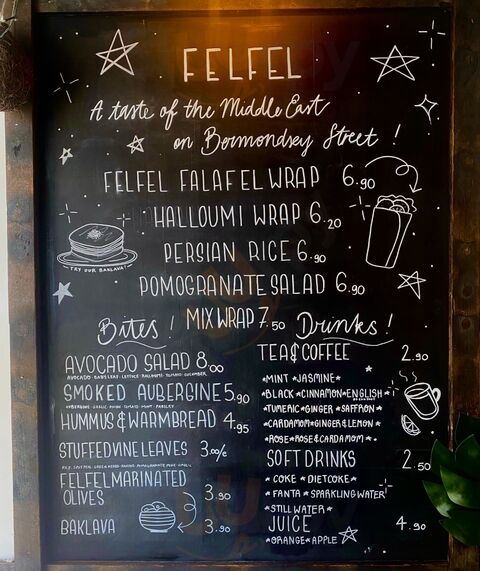 FELFEL
A taste of the Middle East
on Bermondsey Street !
FELFEL FALAFEL WRAP 6.90
HALLOUMI WRAP 6.20
PERSIAN RICE 6.90
TRY OUR BAKLAVA!
POMOGRANATE SALAD 6.90
MIX WRAP 7.50
Bites !
AVOCADO SALAD 8.00
AVOCADO·BABY LEAF·LETTUCE·HALLOUMI·TOMATO·CUCUMBER
SMOKED AUBERGINE 5.90
AUBERGINE·GARLIC·ONION·TOMATO·MINT·PARSLEY
HUMMUS & WARMBREAD 4.95
STUFFED VINE LEAVES
RICE
FELFEL MARINATED
OLIVES 3.90
BAKLAVA 3.90
Drinks !
TEA & COFFEE 2.90
*MINT *JASMINE*
*BLACK*CINNAMON*ENGLISH
BREAKFAST
*TUMERIC*GINGER*SAFFRON*
*CARDAMOM*GINGER&LEMON*
*ROSE*ROSE&CARDAMOM*
SOFT DRINKS 2.50
*COKE *DIET COKE*
*FANTA*SPARKLING WATER*
*STILL WATER*
JUICE 4.90
*ORANGE*APPLE*